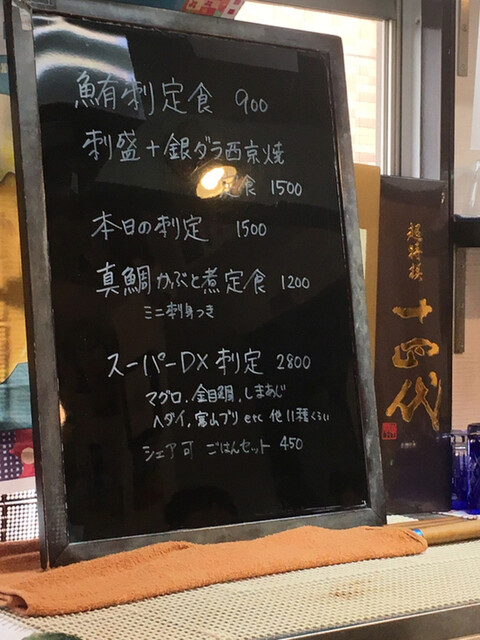 鮪刺定食 900
刺盛+銀ダラ西京焼
定食 1500
本日の刺定 1500
真鯛かぶと煮定食 1200
ミニ刺身つき
スーパーDX刺定 2800
マグロ、金目鯛、しまあじ
ヘダイ、富山ブリ etc 他11種くらい
シェア可 ごはんセット 450
超特撰
十四代